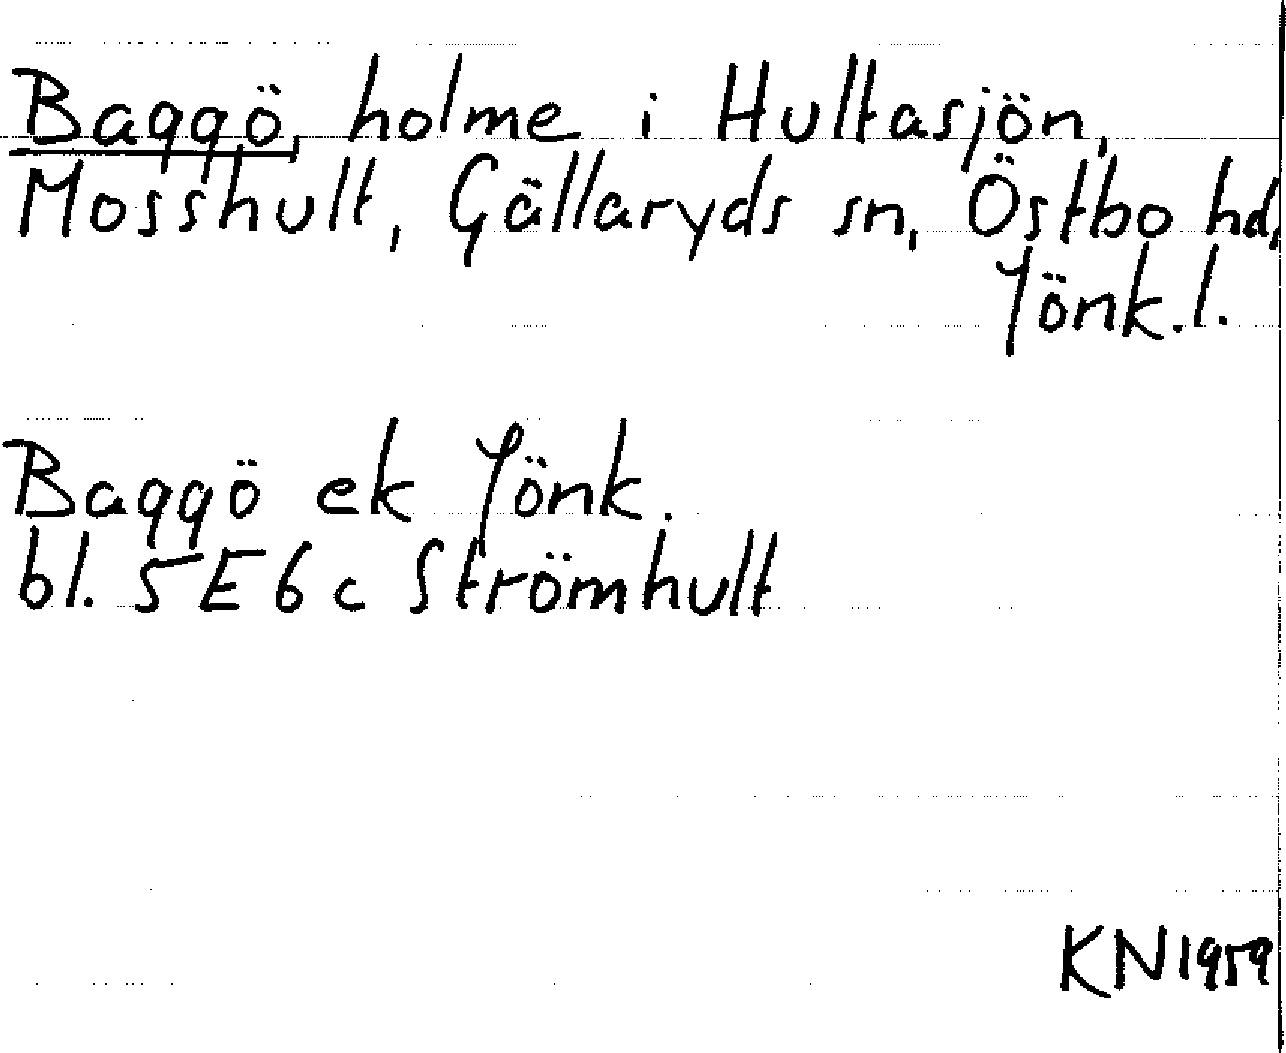 Baggö, holme i Hultasjön,
Mosshult, Gällaryds sn, Östbo hd,
Jönk.l.
Baggö ek Jönk.
bl. 5E6c Strömhult
KN1959